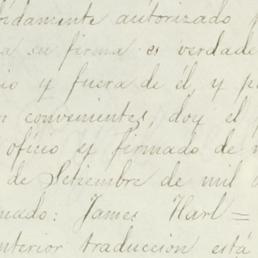 bidamente autorizado p
a su firma es verdade
io y fuera de él, y p
n convenientes, doy el
oficio y firmado de m
de Setiembre de mil o
mado: James Harl=
nterior traduccion está